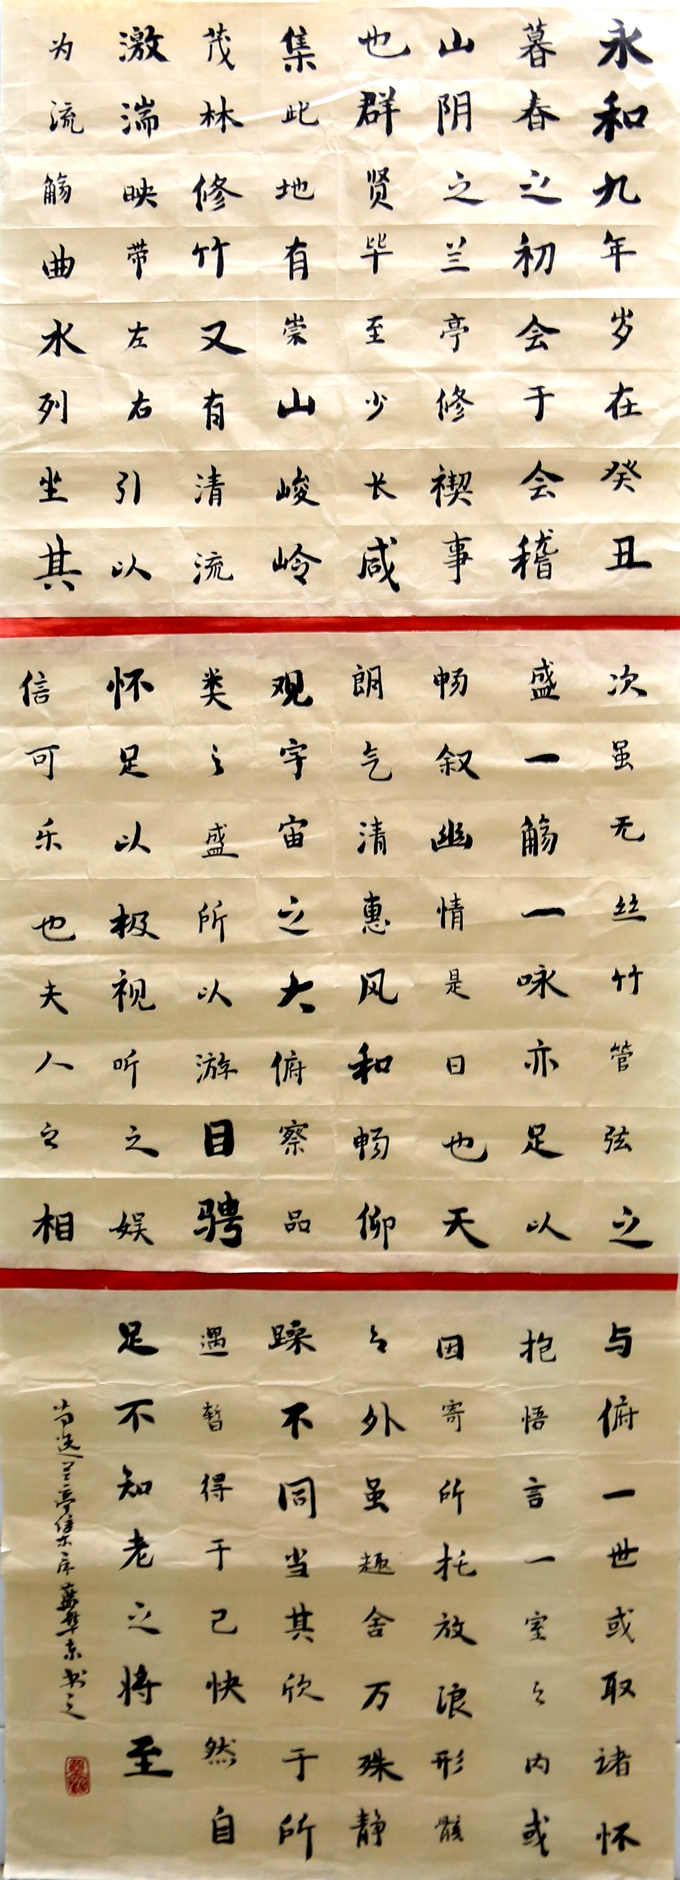 永和九年岁在癸丑
暮春之初会于会稽
山阴之兰亭修禊事
也群贤毕至少长咸
集此地有崇山峻岭
茂林修竹又有清流
激湍映带左右引以
为流觞曲水列坐其
次虽无丝竹管弦之
盛一觞一咏亦足以
畅叙幽情是日也天
朗气清惠风和畅仰
观宇宙之大俯察品
类之盛所以游目骋
怀足以极视听之娱
信可乐也夫人之相
与俯一世或取诸怀
抱悟言一室之内或
因寄所托放浪形骸
之外虽趣舍万殊静
躁不同当其欣于所
遇暂得于己快然自
足不知老之将至
选兰亭集序书之